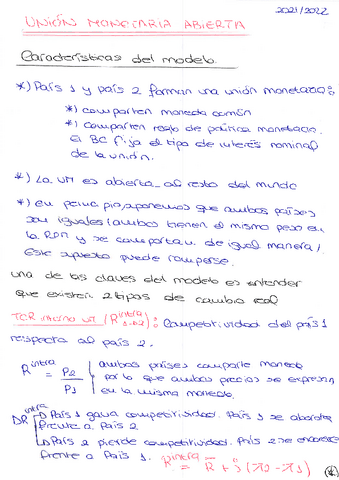 2021/2022
UNIÓN MONETARIA ABIERTA
Características del modelo.
*) País 1 y país 2 forman una unión monetaria:
*) comparten moneda común
*) comparten regla de política monetaria.
El BC fija el tipo de interés nominal
de la unión.
*) La UM es abierta al resto del mundo
*) en principio, suponemos que ambos países
son iguales (ambos tienen el mismo peso en
la RDM y se comportan de igual manera)
Este supuesto puede romperse.
una de las claves del modelo es entender
que existen 2 tipos de cambio real
TCR interno UM (R intra 1-2): Competitividad del país 1
respecto al país 2.
R intra = P2 / P1 ambos países comparte moneda
por lo que ambos precios se expresan
en la misma moneda.
ΔR intra País 1 gana competitividad. País 1 se abarata
frente a País 2
País 2 pierde competitividad. País 2 se encarece
frente a País 1. R intra = R + j (π2 - π1)